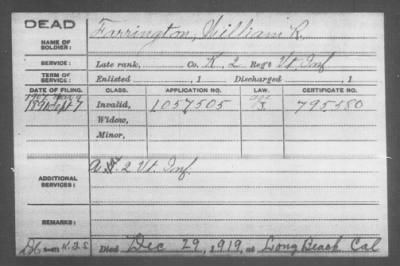 DEAD
NAME OF SOLDIER: Farrington, William R.
SERVICE: Late rank, Co. K, 2 Reg't Vt. Inf
TERM OF SERVICE: Enlisted , 1 Discharged , 1
DATE OF FILING. CLASS. APPLICATION NO. LAW. CERTIFICATE NO.
1891 Sept 7 Invalid, 1057505 795580
Widow,
Minor,
ADDITIONAL SERVICES: 2 Vt. Inf.
REMARKS:
Died Dec 29, 1919, at Long Beach Cal